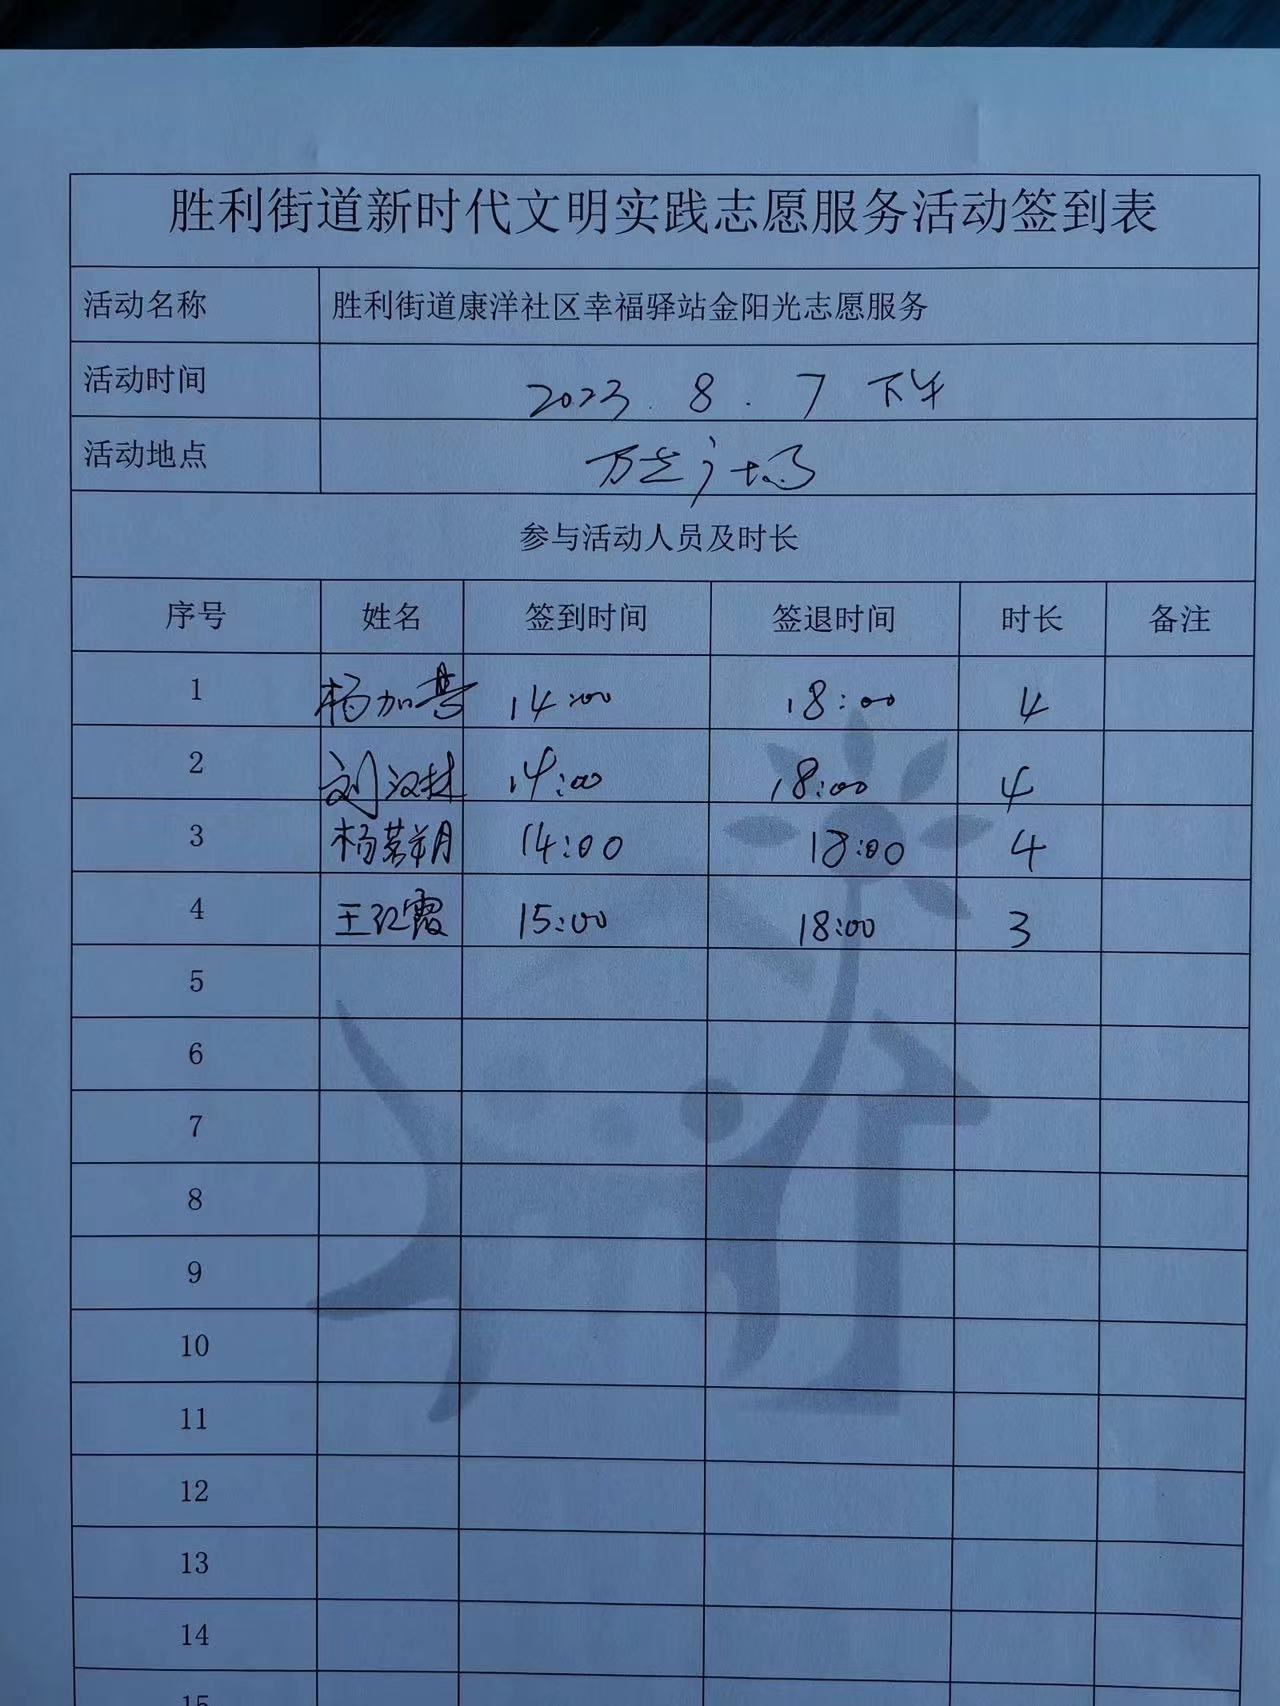 胜利街道新时代文明实践志愿服务活动签到表
活动名称 胜利街道康洋社区幸福驿站金阳光志愿服务
活动时间 2023.8.7 下午
活动地点 万达广场
参与活动人员及时长
序号 姓名 签到时间 签退时间 时长 备注
1 杨加 14:00 18:00 4
2 刘汉林 14:00 18:00 4
3 杨 14:00 18:00 4
4 王红霞 15:00 18:00 3
5
6
7
8
9
10
11
12
13
14
15